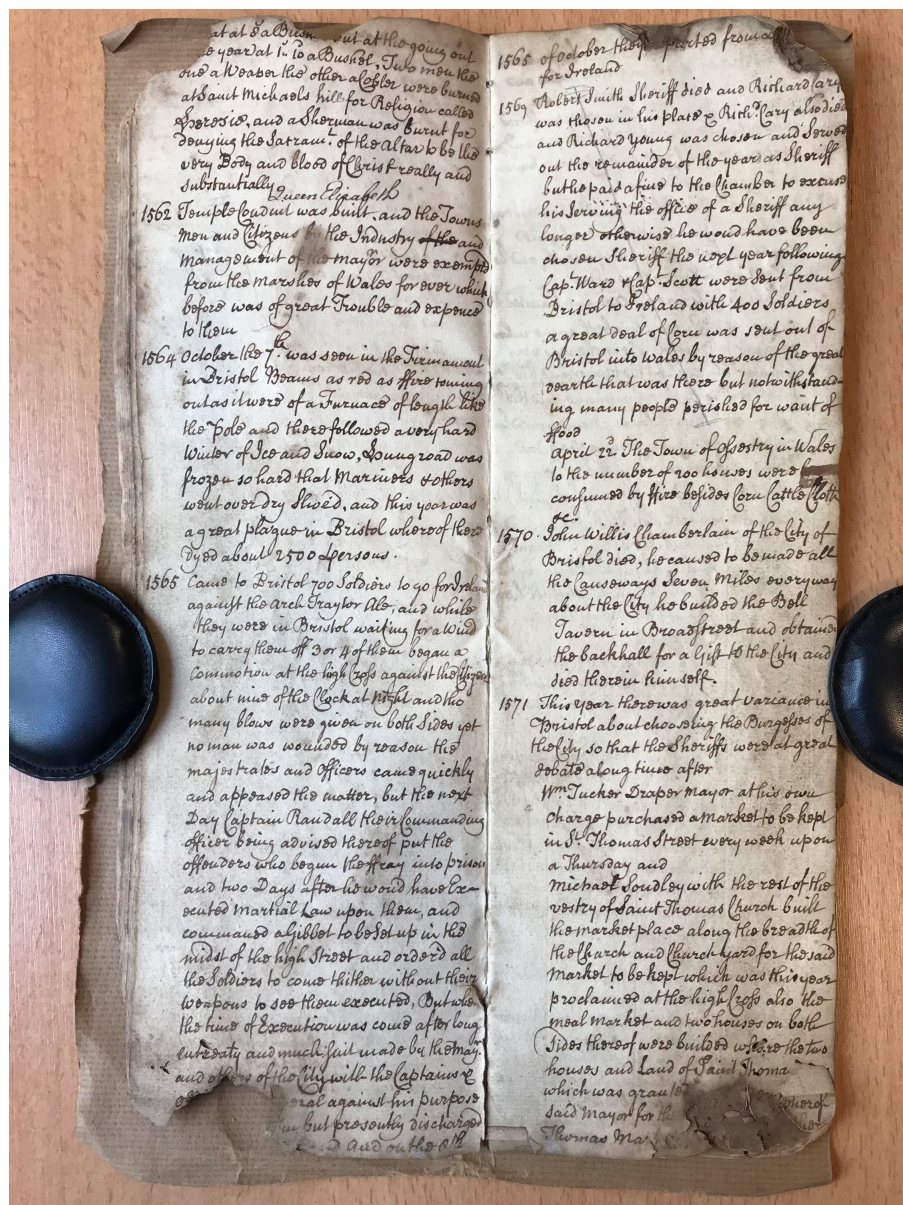 at at out at the going out
year at a Bushel, Two men the
one a Weaver the other a Cobler were burned
at Saint Michaels hill for Religion called
Heresie, and a Sherman was burnt for
denying the Sacramt. of the Altar to be the
very Body and blood of Christ really and
substantially
Queen Elizabeth
1562 Temple Conduit was built, and the Towns
Men and Citizens by the Industry of the and
Management of the Mayor were exempted
from the Marshes of Wales for ever which
before was of great Trouble and expence
to them
1564 October the 7th. was seen in the Firmament
in Bristol Beams as red as ffire coming
out as it were of a Furnace of length like
the Pole and there followed a very hard
Winter of Ice and Snow, Hungroad was
frozen so hard that Mariners & others
went over dry Shoed, and this year was
a great plague in Bristol whereof there
dyed about 2500 persons.
1565 Came to Bristol 700 Soldiers to go for Ireland
against the Arch Traytor Ale, and while
they were in Bristol waiting for a Wind
to carry them off 3 or 4 of them began a
Commotion at the high Cross against the Citizens
about nine of the Clock at night and tho
many blows were given on both Sides yet
no man was wounded by reason the
majestrates and Officers came quickly
and appeased the matter, but the next
Day Captain Randall their Commanding
officer being advised thereof put the
offenders who began the ffray into prison
and two Days after he woud have Ex=
ecuted Martial Law upon them, and
commaned a Gibbet to be Set up in the
midst of the high Street and order'd all
the Soldiers to come thither without their
weapons to see them executed, But when
the time of Execution was come after long
entreaty and much suit made by the may.
and others of the City with the Captains &
eral against his purpose
but presently discharged
And on the
1565 of October they parted from
for Ireland
1569 Robert Smith Sheriff died and Richard Cary
was chosen in his place & Richd. Cary also died
and Richard Young was chosen and Served
out the remainder of the year as Sheriff
but he paid a fine to the Chamber to excuse
his Serving the office of a Sheriff any
longer otherwise he woud have been
chosen Sheriff the next year following
Capt. Ward & Capt. Scott were Sent from
Bristol to Ireland with 400 Soldiers
a great deal of Corn was sent out of
Bristol into Wales by reason of the great
dearth that was there but notwithstand-
ing many people perished for want of
ffood
April 22 The Town of Ossestry in Wales
to the number of 200 houses were
consumed by ffire besides Corn Cattle Cloth
&c.
1570. John Willis Chamberlain of the City of
Bristol died, he caused to be made all
the Causeways Seven Miles everyway
about the City he builded the Bell
Tavern in Broadstreet and obtained
the backhall for a Gift to the City and
died therein himself.
1571 This year there was great variance in
Bristol about choosing the Burgesses of
the City so that the Sheriffs were at great
debate a long time after
Wm Tucker Draper Mayor at his own
charge purchased a market to be kept
in St. Thomas Street every week upon
a Thursday and
Michael Soudley with the rest of the
vestry of Saint Thomas Church built
the market place along the breadth of
the Church and Church yard for the said
Market to be kept which was this year
proclaimed at the high Cross also the
meal market and two houses on both
Sides thereof were builded where the two
houses and Land of Saint Thoma
which was whereof
said Mayor for
Thomas